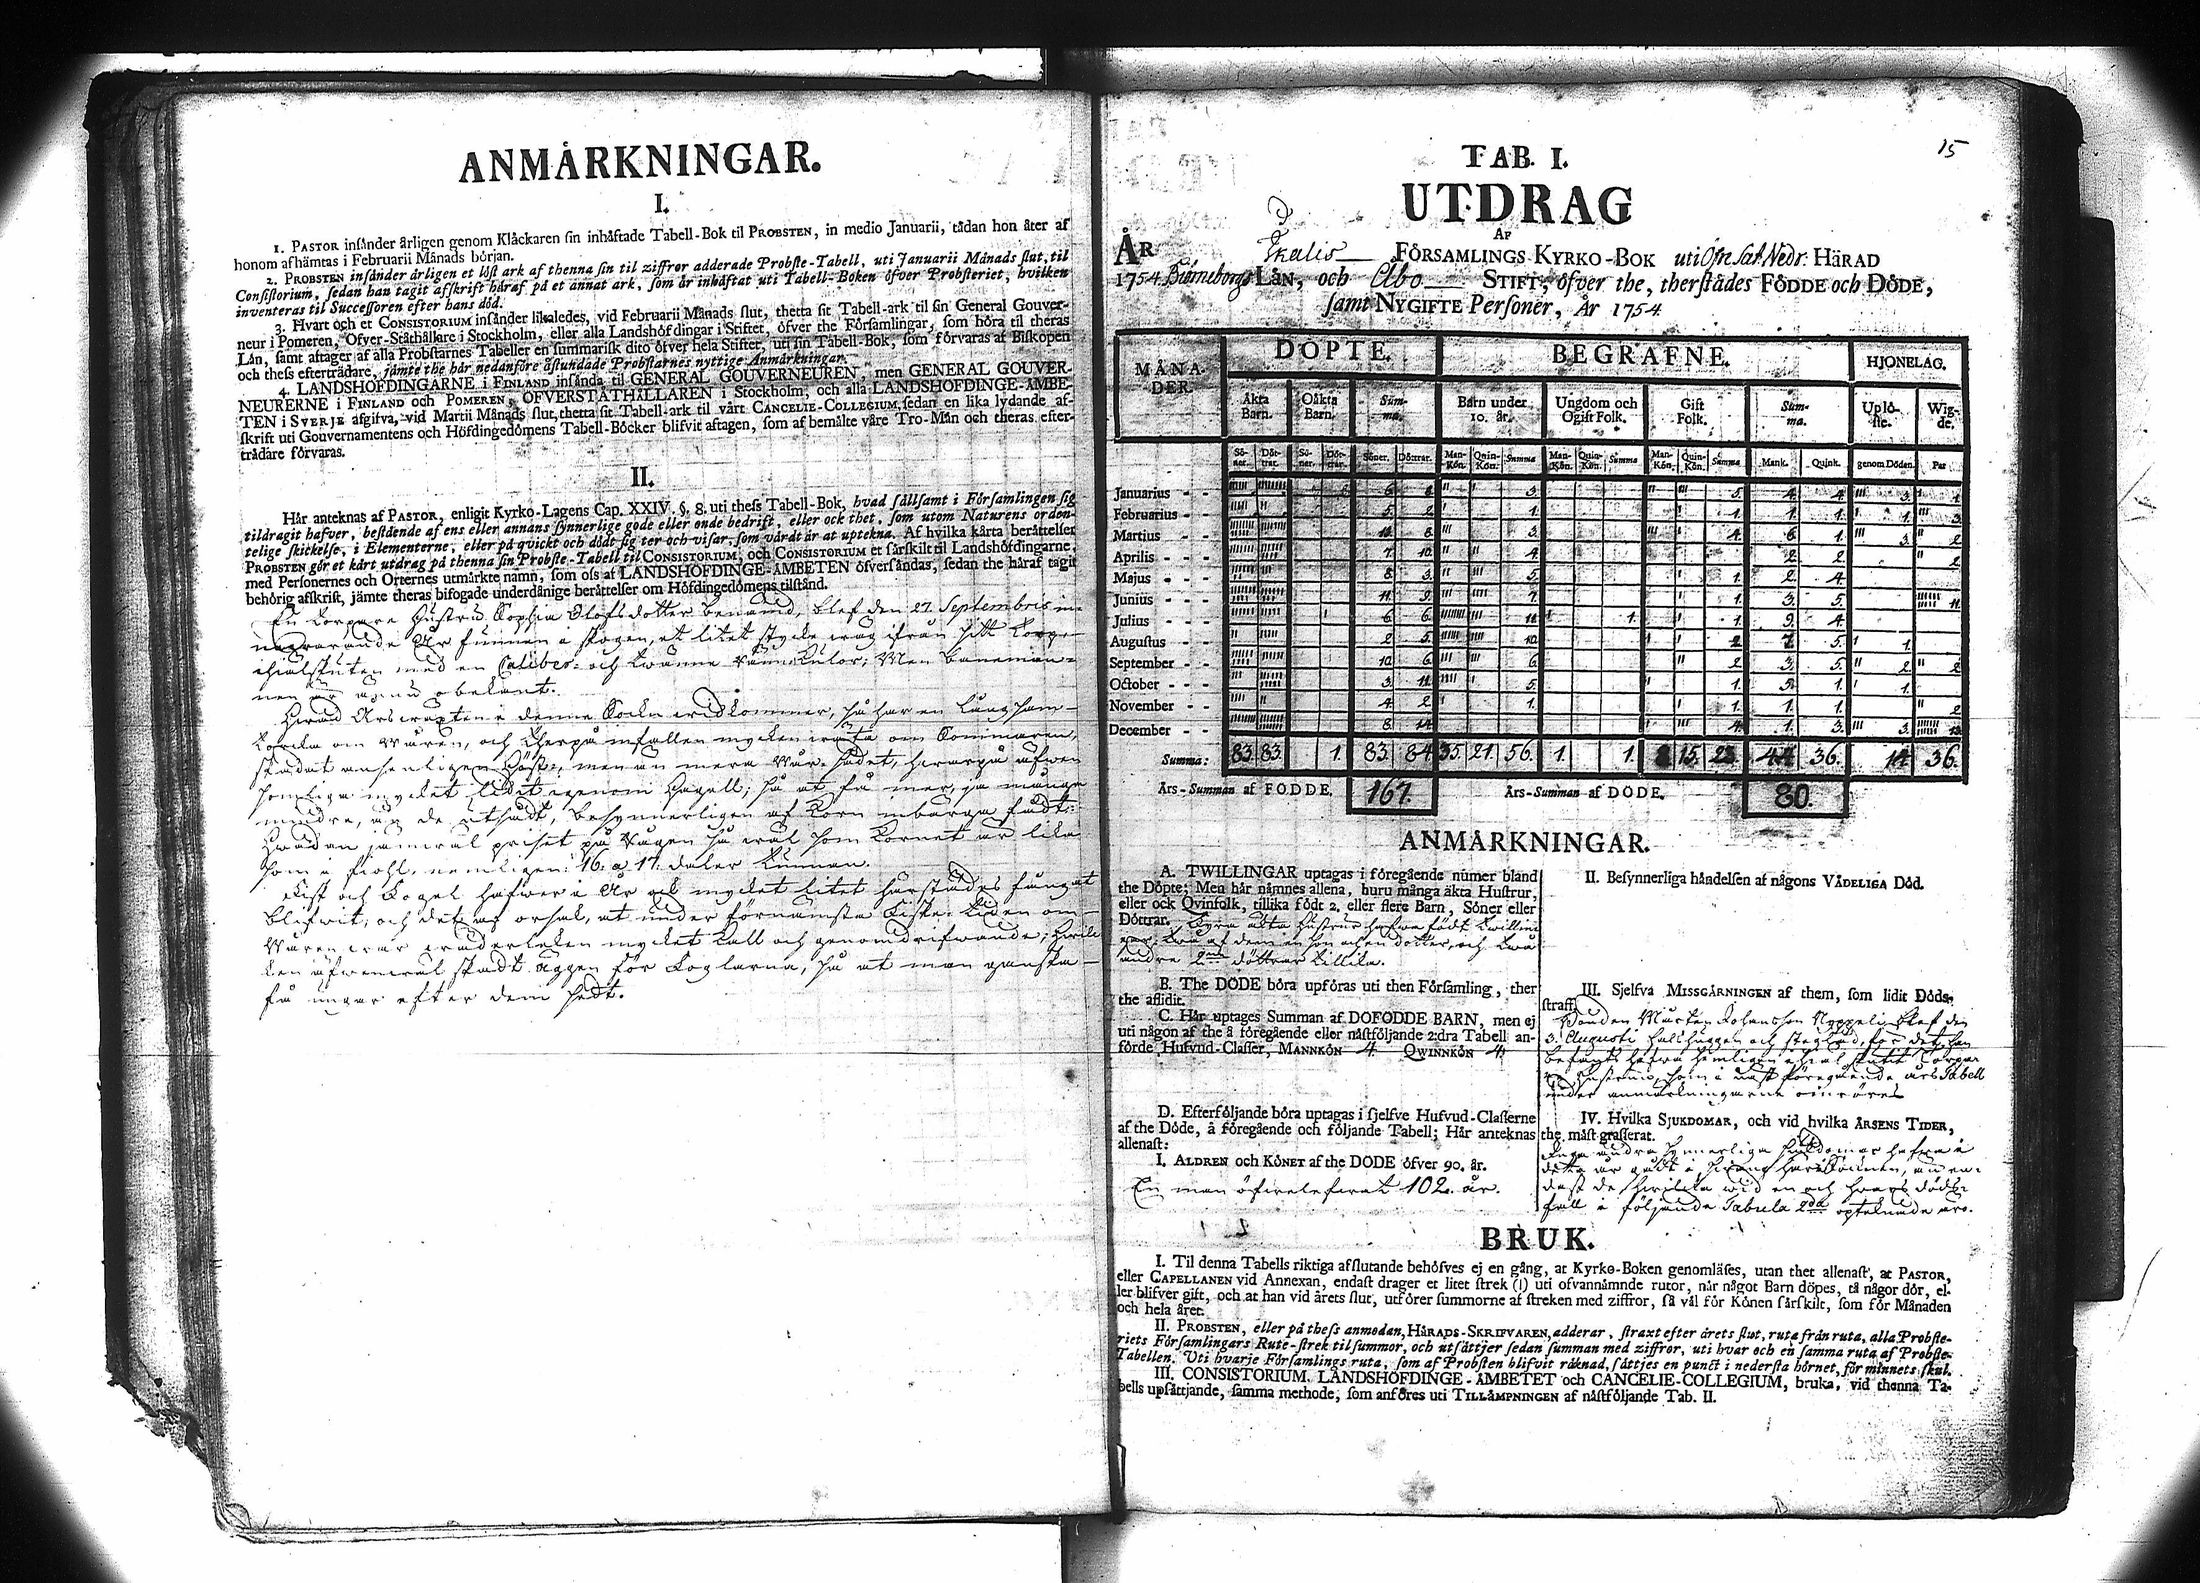 ANMÅRKNINGAR.
I.
1. PASTOR insånder årligen genom Klåckaren sin inhåftade Tabell-Bok til PROBSTEN, in medio Januarii, tådan hon åter af
honom afhåmtas i Februarii Månads början.
2. PROBSTEN insånder årligen et löst ark af thenna sin til ziffror adderade Probste-Tabell, uti Januarii Månads slut, til
Consistorium, sedan han tagit afskrift håraf på et annat ark, som år inhåftat uti Tabell-Boken öfver Probsteriet, hvilken
inventeras til Successoren efter hans död.
3. Hvart och et CONSISTORIUM insånder likaledes, vid Februarii Månads slut, thetta sit Tabell-ark til sin General Gouver-
neur i Pomeren, Ofver-Ståthållare i Stockholm, eller alla Landshöfdingar i Stiftet, öfver the Församlingar, som höra til theras
Lån, samt aftager af alla Probstarnes Tabeller en summarisk dito öfver hela Stiftet, uti sin Tabell-Bok, som förvaras af Biskopen
och thess eftertrådare, jåmte the hår nedanföre åstundade Probstarnes nyttige Anmårkningar.
4. LANDSHÖFDINGARNE i FINLAND insånda til GENERAL GOUVERNEUREN, men GENERAL GOUVER-
NEURERNE i FINLAND och POMEREN, ÖFVERSTÅTHÅLLAREN i Stockholm, och alla LANDSHÖFDINGE-ÅMBE-
TEN i SVERJE afgifva, vid Martii Månads slut, thetta sit Tabell-ark til vårt CANCELIE-COLLEGIUM, sedan en lika lydande af-
skrift uti Gouvernamentens och Höfdingedömens Tabell-Böcker blifvit aftagen, som af bemålte våre Tro-Mån och theras efter-
trådare förvaras.
II.
Hår anteknas af PASTOR, enligit Kyrko-Lagens Cap. XXIV. §. 8. uti thess Tabell-Bok, hvad sållsamt i Församlingen sig
tildragit hafver, bestående af ens eller annans synnerlige gode eller onde bedrift, eller ock thet, som utom Naturens orden-
telige skickelse, i Elementerne, eller på qvickt och dödt sig ter och visar, som vårdt år at uptekna. Af hvilka kårta beråttelser
PROBSTEN gör et kårt utdrag på thenna sin Probste-Tabell til CONSISTORIUM, och CONSISTORIUM et sårskilt til Landshöfdingarne,
med Personernes och Orternes utmårkte namn, som oss af LANDSHÖFDINGE-ÅMBETEN öfversåndas, sedan the håraf tagit
behörig afskrift, jåmte theras bifogade underdånige beråttelser om Höfdingedömens tilstånd.
En Torpare Hustru Sophia Olofsdotter benämd, blef den 27. Septembris in-
newarande År funnen i skogen, et litet stycke wäg ifrån sitt Torp
ihjälskuten med en Calibers och twänne Kulor; Men baneman-
nen är ännu obekant.
Hwad Årswäxten i denne Sockn widkommer, så har en långsam
torcka om Wåren, och therpå infallen mycken wäta om Sommaren,
skadat ansenligen Höst-, men än mera Wår-Sädet, hwarpå äfwen
somliga mycket lidit igenom Hagell; så at få mer, ja mången
mindre, än de utsådt, besynnerligen af Korn inbärga fådt:
Hwadan jämwäl priset på Rågen så wäl som Kornet är lika
som i fiohl, nemligen 16. a 17. daler Tunnan.
Fisk och Fogel hafwer i År ock mycket litet härstädes fångat
blifwit; och det af orsak, at under förnämsta Fiske-tiden om
Wåren war wäderleken mycket kall och genomdrifwande; hwil-
ken äfwenwäl skadt äggen för Foglarna, så at man ganska
få ungar efter dem sedt.
15
TAB. I.
UTDRAG
AF
ÅR Ikalis FÖRSAMLINGS KYRKO-BOK uti Öfre Sat. Nedr. HÅRAD
1754. Biörneborgs LÅN, och Åbo STIFT, öfver the, therstådes FÖDDE och DÖDE,
samt NYGIFTE Personer, År 1754
MÅNA-DER. DÖPTE. BEGRAFNE. HJONELAG.
Åkta Barn. Oåkta Barn. Summa. Barn under 10. år. Ungdom och Ogift Folk. Gift Folk. Summa. Uplöste. Wigde.
Söner. Döttrar. Söner. Döttrar. Söner. Döttrar. Man-Kön. Quin-Kön. Summa Man-Kön. Quin-Kön. Summa Man-Kön. Quin-Kön. Summa Mank. Quink. genom Döden. Par
Januarius - - 6. 8. 3. 5. 4. 4. 3. 1.
Februarius - - 5. 2. 1. 1. 1. 1. 1. 3.
Martius - - 8. 3. 4. 6. 1. 3. 2.
Aprilis - - 7. 10. 4. 2. 2. 2.
Majus - - 8. 3. 5. 1. 2. 4.
Junius - - 11. 9. 7. 1. 3. 5. 11.
Julius - - 6. 6. 11. 1. 1. 9. 4.
Augustus - - 2. 5. 10. 2. 7. 5. 1.
September - - 10. 6. 6. 2. 3. 5. 2. 2
October - - - 3. 11. 5. 1. 5. 1. 1.
November - - 4. 2. 1. 1. 1. 1. 2
December - - 8. 14. 4. 1. 3. 3. 13.
Summa: 83. 83. 1. 83. 84. 35. 21. 56. 1. 1. 8. 15. 23. 44. 36. 14. 36.
Års-Summan af FÖDDE. 167. Års-Summan af DÖDE. 80.
ANMÅRKNINGAR.
A. TWILLINGAR uptages i föregående numer bland
the Döpte; Men hår nåmnes allena, huru många åkta Hustrur,
eller ock Qvinfolk, tillika födt 2. eller flere Barn, Söner eller
Döttrar. Fyra äkta Hustrur hafwa födt twillin-
gar, twå af dem en son och en dotter, och twå
andre 2ne döttrar tillika.
B. The DÖDE böra upföras uti then Församling, ther
the aflidit.
C. Hår uptages Summan af DÖDFÖDDE BARN, men ej
uti någon af the å föregående eller nåstföljande 2:dra Tabell an-
förde Hufvud-Classer, MANNKÖN 4. QWINNKÖN 4.
D. Efterföljande böra uptagas i sjelfve Hufvud-Classerne
af the Döde, å föregående och följande Tabell; Hår anteknas
allenast:
I. ÅLDREN och KÖNET af the DÖDE öfver 90. år.
En man öfwerlefwat 102. år.
II. Besynnerliga håndelsen af någons VÅDELIGA Död.
III. Sjelfva MISSGÅRNINGEN af them, som lidit Döds-
straff.
Bonden Mårten Johansson blef den
3. Augusti halshuggen och steglad, för det han
befants hafwa hemligen ihjälskutit Torpar
Hustrun, som i näst föregående års Tabell
under anmärkningarne omröres
IV. Hvilka SJUKDOMAR, och vid hvilka ÅRSENS TIDER,
the måst grasserat.
Inga andra synnerliga sjukdomar hafwa i
detta år gådt i swang härstädes, än en-
dast de, hwilka wid en och hwars döds-
fall i följande Tabula 2da optecknade äro.
BRUK.
I. Til denna Tabells riktiga afslutande behöfves ej en gång, at Kyrko-Boken genomlåses, utan thet allenast, at PASTOR,
eller CAPELLANEN vid Annexan, endast drager et litet strek (I) uti ofvannåmnde rutor, når något Barn döpes, tå någor dör, el-
ler blifver gift, och at han vid årets slut, utförer summorne af streken med ziffror, så vål för Könen sårskilt, som för Månaden
och hela året.
II. PROBSTEN, eller på thess anmodan, HÅRADS-SKRIFVAREN, adderar, straxt efter årets slut, ruta från ruta, alla Probste-
riets Församlingars Rute-strek til summor, och utsåttjer sedan summan med ziffror, uti hvar och en samma ruta af Probste-
Tabellen. Uti hvarje Församlings ruta, som af Probsten blifvit råknad, såttjes en punct i nedersta hörnet, för minnets skul.
III. CONSISTORIUM, LANDSHÖFDINGE-ÅMBETET och CANCELIE-COLLEGIUM, bruka, vid thenna Ta-
bells upsåttjande, samma methode, som anföres uti TILLÅMPNINGEN af nåstföljande Tab. II.